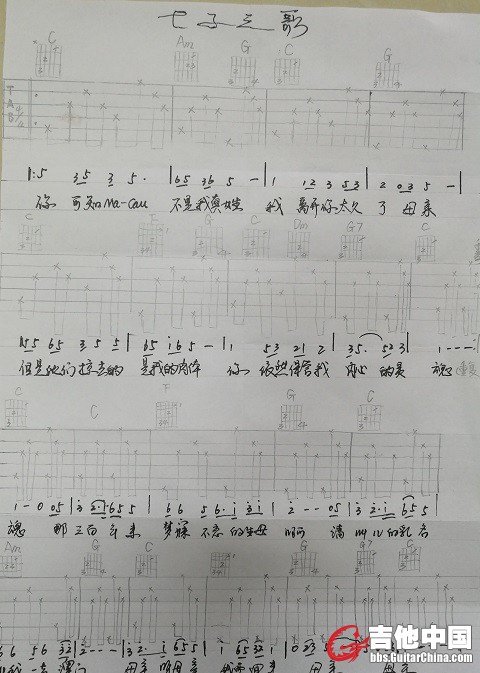 七子之歌
C Am G C G
T
A 4
B 4
|: 5 3 5 3 5 · | 6 5 3 6 5 - | 1 1 2 3 5 3 | 2 0 3 5 - |
你 可知 Ma-Cau 不是我真姓 我 离开你太久 了 母亲
C F G C Dm G7 C
5 5 6 5 3 5 5 | 6 5 i 6 5 - | 1 5 3 2 1 2 | 3 5 · 5 2 3 | 1 - - - :|
但是他们掠去的 是我的肉体 你 依然保管我 内心 的灵 魂
C C F G C
1 - 0 0 5 | i 3 2 · i 6 5 5 | 6 6 5 6 · i 3 i | 2 - - 0 5 | i 3 2 · i 6 5 5
魂 那三百年来 梦寐不忘的生母 啊 请叫儿的乳名
Am G C G G7 C
叫我一声 澳门 母亲 啊母亲 我要回来 母亲 母亲
吉他中国
bbs.GuitarChina.com